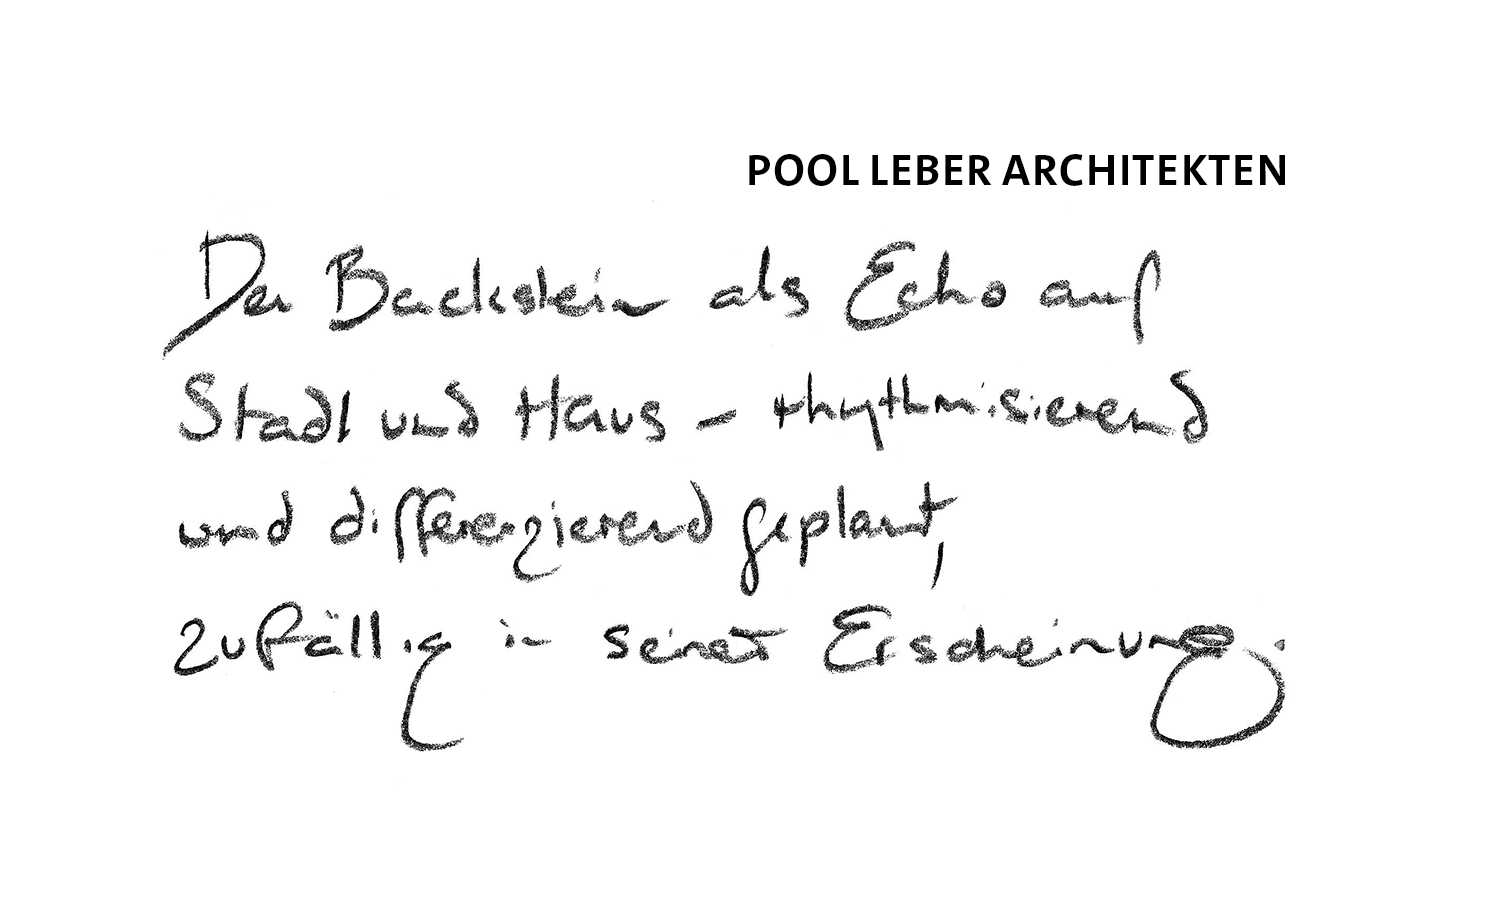 POOL LEBER ARCHITEKTEN
Der Backstein als Echo auf
Stadl und Haus – rhythmisierend
und differenzierend geplant,
zufällig in seiner Erscheinung.